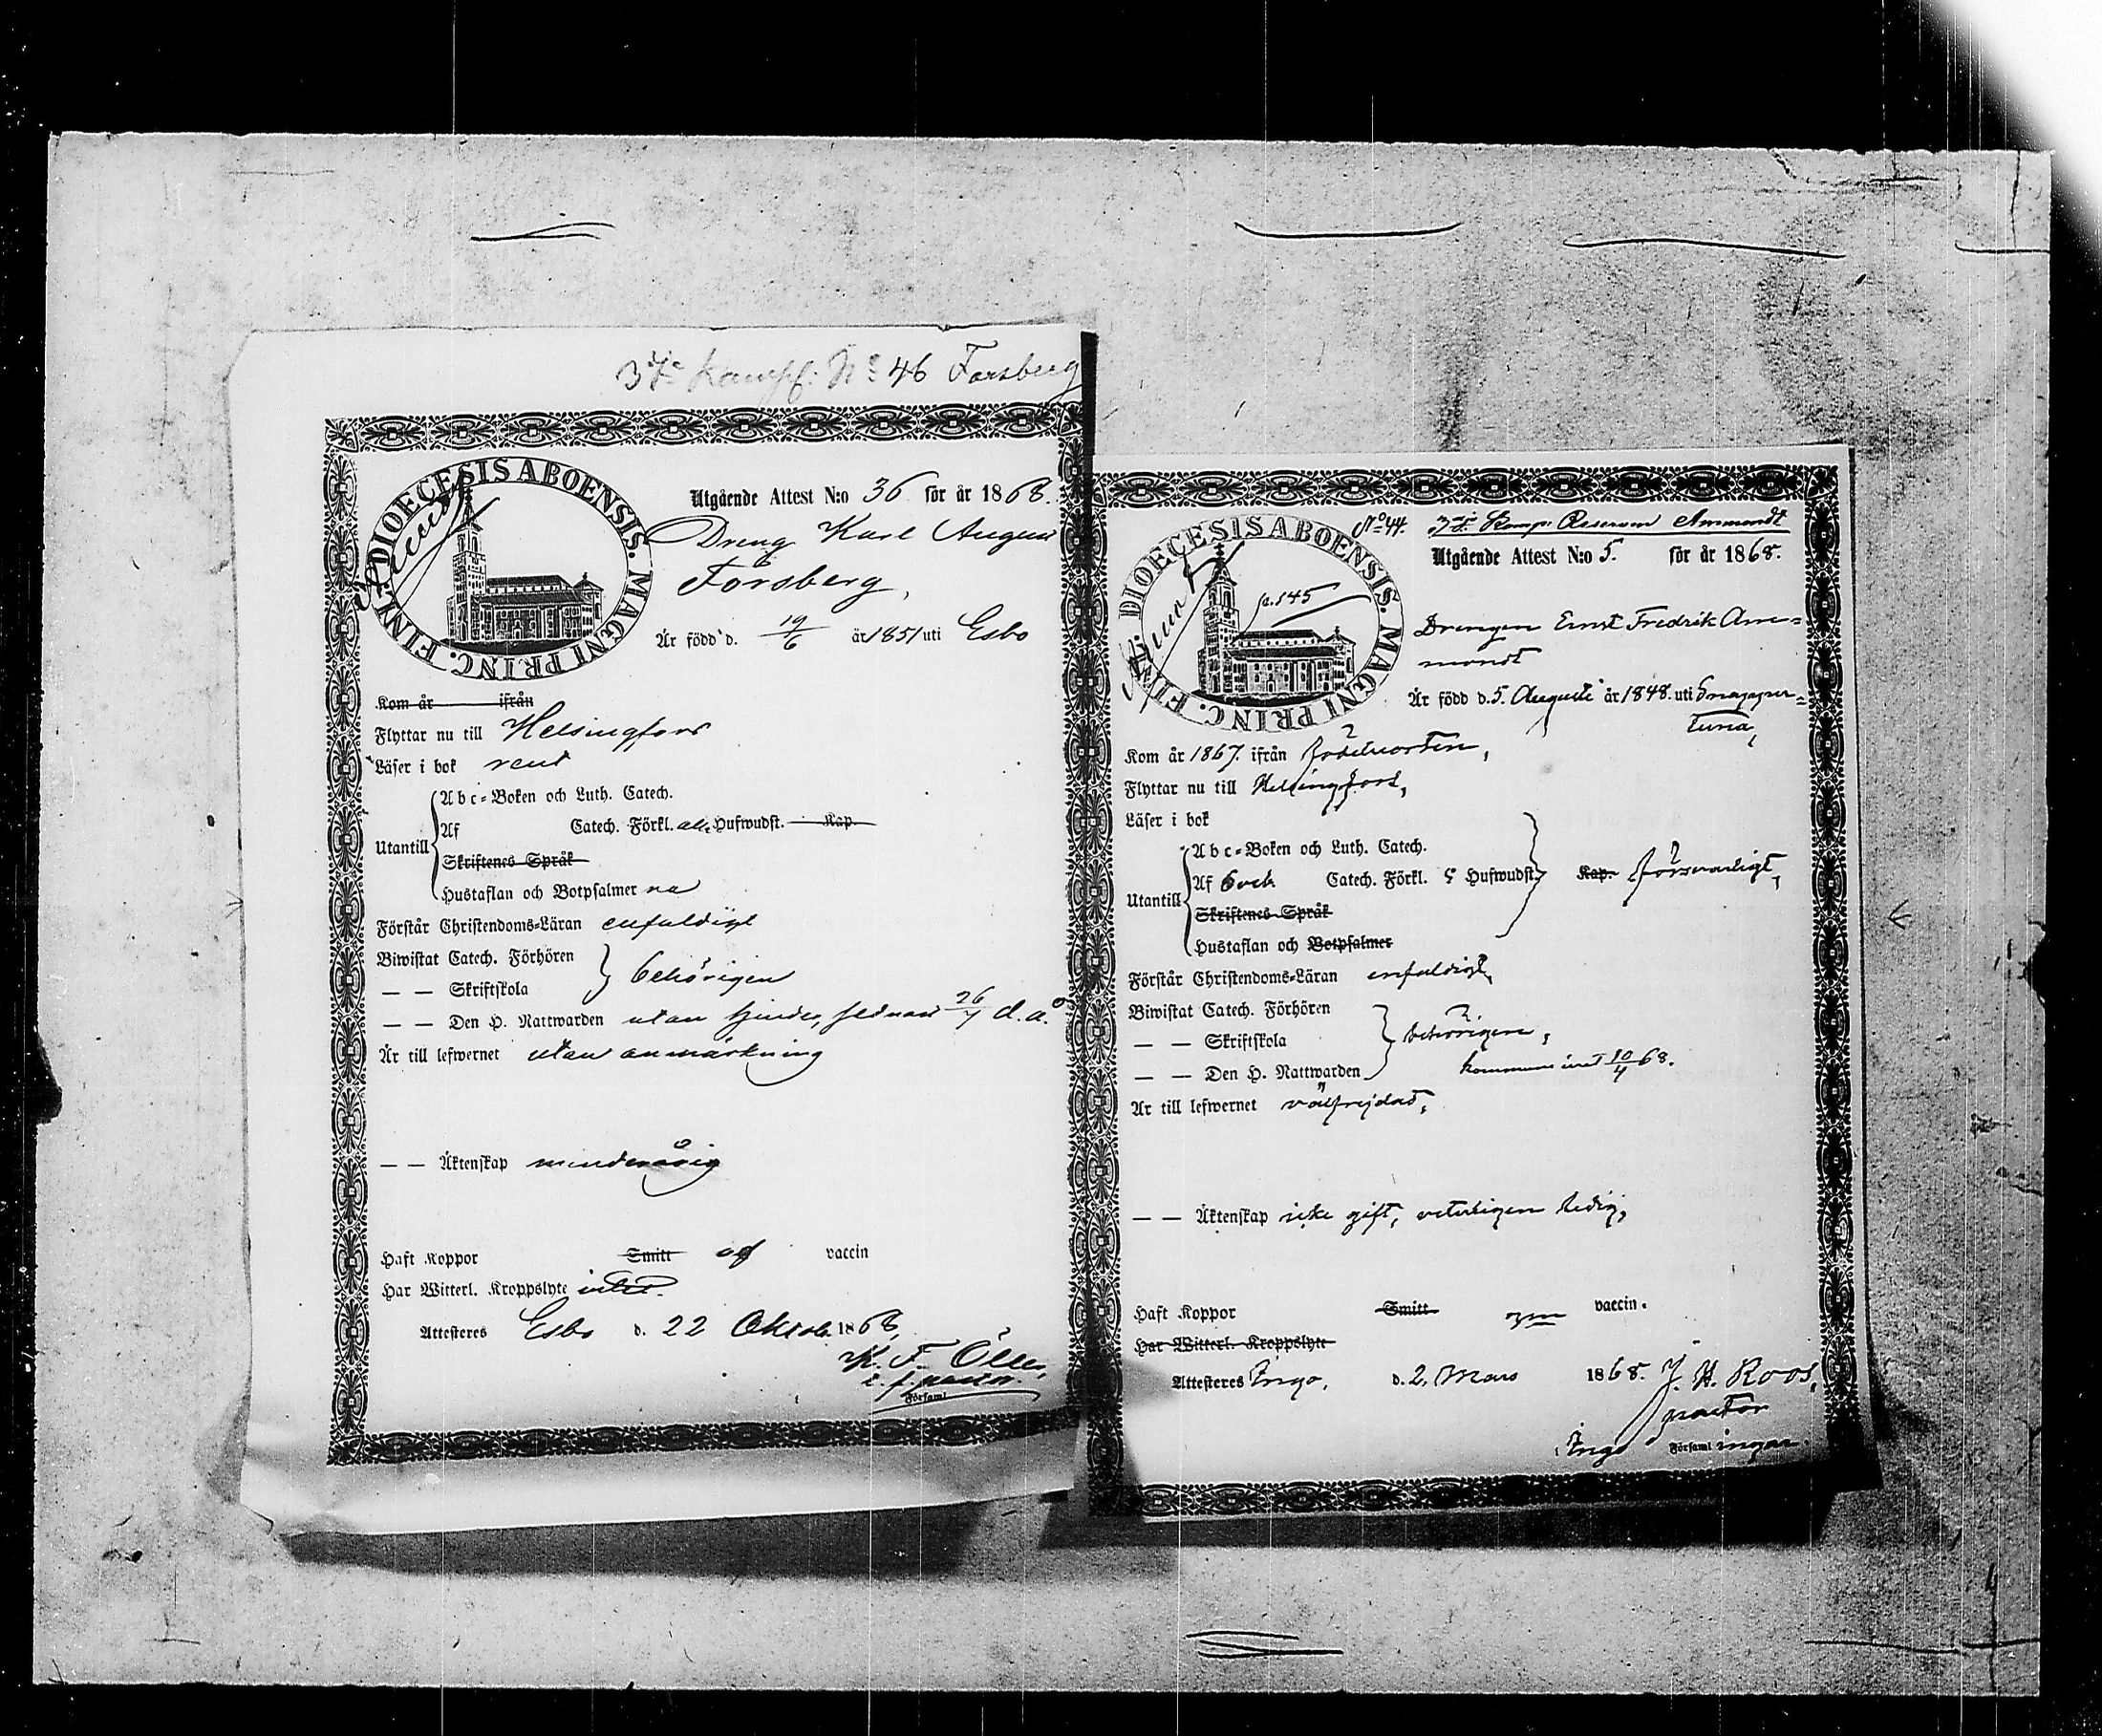 3dje Komp: No 46 Forsberg
DIOECESIS ABOENSIS. MAGNI PRINC. FINL.
Utgående Attest N:o 36 för år 1868.
Dreng Karl August
Forsberg,
Är född d. 19/6 år 1851 uti Esbo
Kom år ifrån
Flyttar nu till Helsingfors
Läser i bok rent
Utantill
Abc-Boken och Luth. Catech.
Af Catech. Förkl. alla Hufwudst. Kap.
Skriftenes Språk
Hustaflan och Botpsalmer
Förstår Christendoms-Läran enfaldigt
Biwistat Catech. Förhören
— — Skriftskola behörigen
— — Den H. Nattwarden utan hinder, sednast 26/7 d.å.
Är till lefwernet utan anmärkning
— — Äktenskap minderårig
Haft Koppor Smitt af vaccin
Har Witterl. Kroppslyte intet.
Attesteres Esbo d. 22 Oktob. 1868,
K. F.
Församl
No 44. 3dje Komp: Reserven Ammondt
DIOECESIS ABOENSIS. MAGNI PRINC. FINL.
p. 145
Utgående Attest N:o 5. för år 1868.
Drengen Ernst Fredrik Am=
mondt
Är född d. 5. Augusti år 1848. uti Snappertuna,
Kom år 1867. ifrån födelseorten,
Flyttar nu till Helsingfors,
Läser i bok
Utantill
Abc-Boken och Luth. Catech.
Af Catech. Förkl. 5 Hufwudst. Kap. försvarligt,
Skriftenes Språk
Hustaflan och Botpsalmer
Förstår Christendoms-Läran enfaldigt,
Biwistat Catech. Förhören
— — Skriftskola behörigen,
— — Den H. Nattwarden
Är till lefwernet välfrejdad,
— — Äktenskap icke gift, veterligen ledig,
Haft Koppor Smitt vaccin.
Har Witterl. Kroppslyte
Attesteres Ingo, d. 2. Mars 1868. J. H. Roos,
pastor
i Ingo Församlingar.